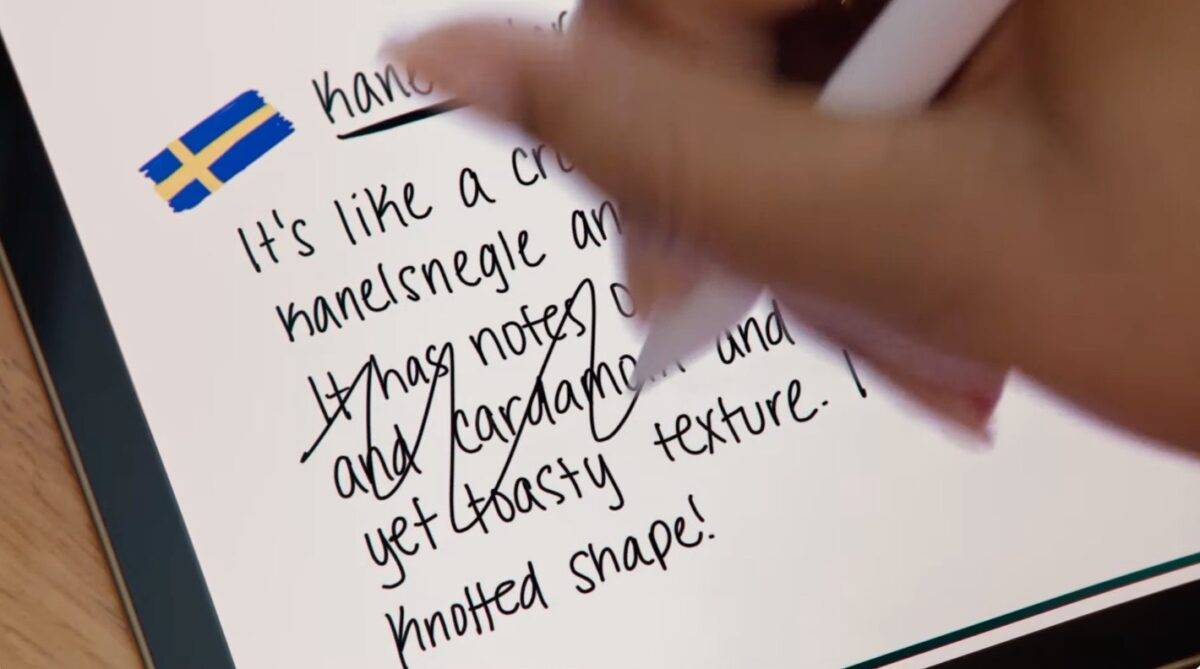 It's like a
kanelsnegle
It has notes
and cardamom and
yet toasty texture.
Knotted shape!